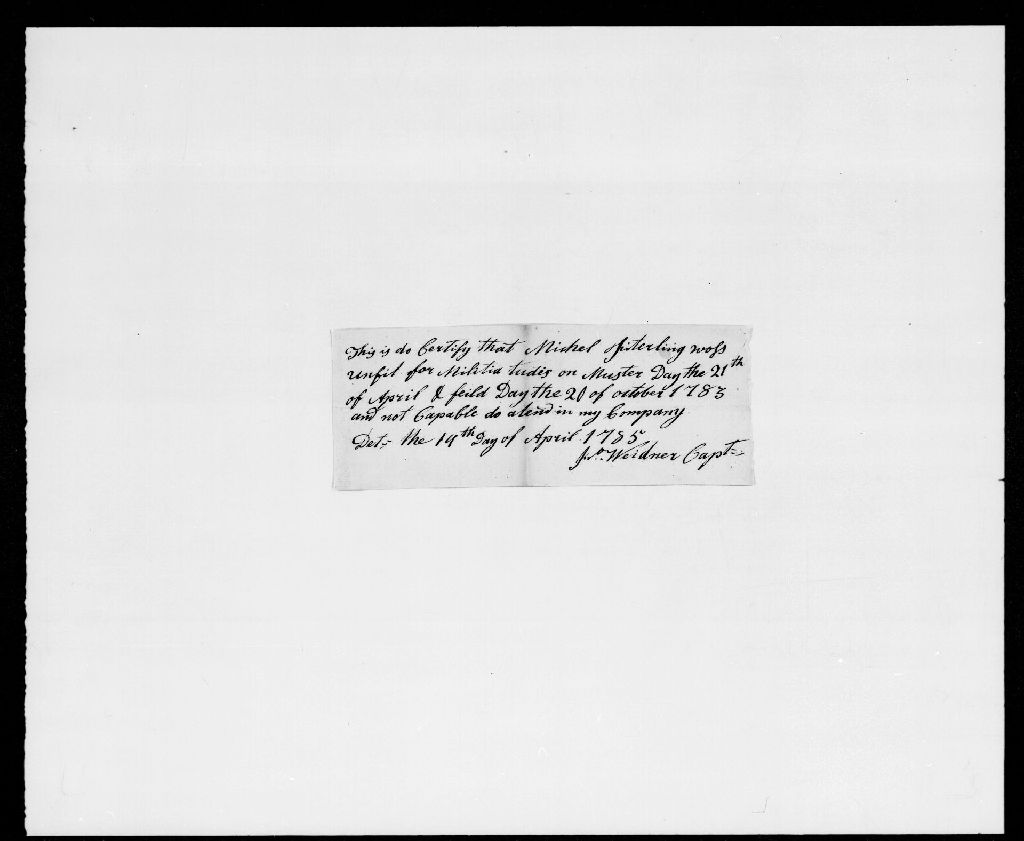 This is do Certify that Michel Sisterling woss
unfit for Militia tudis on Muster Day the 21th
of April & feild Day the 20 of october 1783
and not Capable do atend in my Company
Det:- the 14th Day of April 1785
Weidner Capt:-